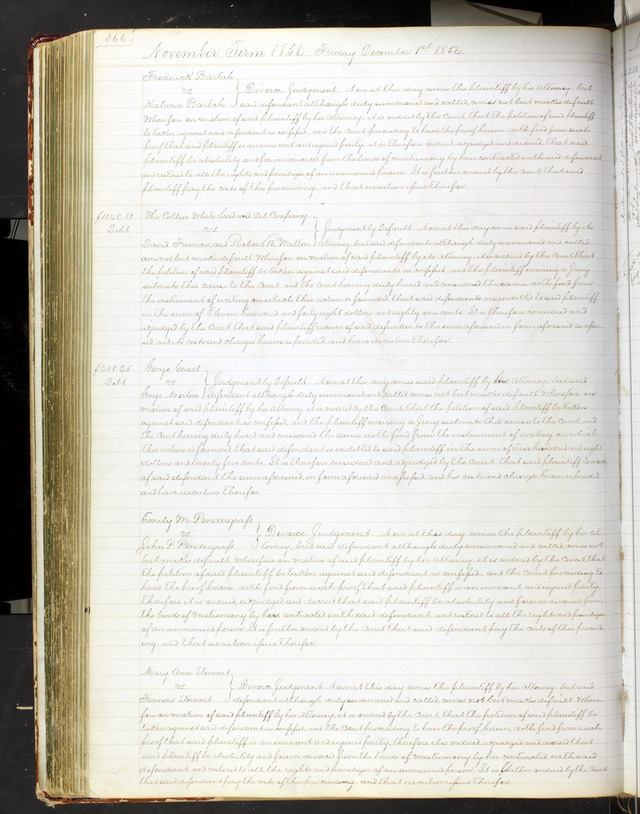 366
November Term 1854. Friday December 1st 1854.
Frederick Bartah
vs. Divorce Judgment. Now at this day comes the plaintiff by his Attorney, but
Katrina Bartah said defendant although duly summoned and called, comes not but makes default.
Wherefore on motion of said plaintiff by his Attorney, it is ordered by the Court that the petition of said plaintiff
be taken against said defendant as confessed, and the Court proceeding to hear the proof herein, doth find from such
proof that said plaintiff is an innocent and injured party, it is therefore ordered adjudged and decreed that said
plaintiff be absolutely and forever divorced from the bonds of matrimony by him contracted with said defendant
and restored to all the rights and privileges of an unmarried person. It is further ordered by the Court that said
plaintiff pay the costs of this proceeding, and that execution issue therefor.
$1148.81 The Collier White Lead and Oil Company
Debt vs. Judgment by Default. Now at this day comes said plaintiff by its
David Francis and Robert R. Walton Attorney, but said defendants although duly summoned and called
come not but make default. Wherefore on motion of said plaintiff by its Attorney, it is ordered by the Court that
the petition of said plaintiff be taken against said defendants as confessed, and the plaintiff waiving a Jury
submits this cause to the Court and the Court having duly heard and considered the same doth find from
the instrument of writing on which this action is founded, that said defendants are indebted to said plaintiff
in the sum of Eleven hundred and forty eight dollars and eighty one cents. It is therefore considered and
adjudged by the Court that said plaintiff recover of said defendants the sum aforesaid in form aforesaid as asses-
sed, and its costs and charges herein expended, and have execution therefor.
$208.25 George
Debt vs. Judgment by Default. Now at this day comes said plaintiff by his Attorney, but said
George defendant although duly summoned and called comes not but makes default. Wherefore on
motion of said plaintiff by his Attorney, it is ordered by the Court that the petition of said plaintiff be taken
against said defendant as confessed, and the plaintiff waiving a jury submits this cause to the Court and
the Court having duly heard and considered the same doth find from the instrument of writing on which
this action is founded, that said defendant is indebted to said plaintiff in the sum of Two hundred and eight
dollars and twenty five cents. It is therefore considered and adjudged by the Court that said plaintiff recover
of said defendant the sum aforesaid, in form aforesaid as assessed, and his costs and charges herein expended
and have execution therefor.
Emily M. Pendergrass
vs. Divorce Judgment. Now at this day comes the plaintiff by her At-
John P. Pendergrass torney, but said defendant although duly summoned and called comes not
but makes default. Wherefore on motion of said plaintiff by her Attorney, it is ordered by the Court that
the petition of said plaintiff be taken against said defendant as confessed, and the Court proceeding to
hear the proof herein doth find from such proof that said plaintiff is an innocent and injured party.
Therefore it is ordered adjudged and decreed that said plaintiff be absolutely and forever divorced from
the bonds of matrimony by her contracted with said defendant and restored to all the rights and privileges
of an unmarried person. It is further ordered by the Court that said defendant pay the costs of this proceed-
ing and that execution issue therefor.
Mary Ann Stewart
vs. Divorce Judgment. Now at this day comes the plaintiff by her Attorney, but said
Francis Stewart defendant although duly summoned and called, comes not but makes default. Where-
fore on motion of said plaintiff by her Attorney, it is ordered by the Court that the petition of said plaintiff be
taken against said defendant as confessed, and the Court proceeding to hear the proof herein, doth find from such
proof that said plaintiff is an innocent and injured party, therefore it is ordered adjudged and decreed that
said plaintiff be absolutely and forever divorced from the bonds of matrimony by her contracted with said
defendant and restored to all the rights and privileges of an unmarried person. It is further ordered by the Court
that said defendant pay the costs of this proceeding and that execution issue therefor.